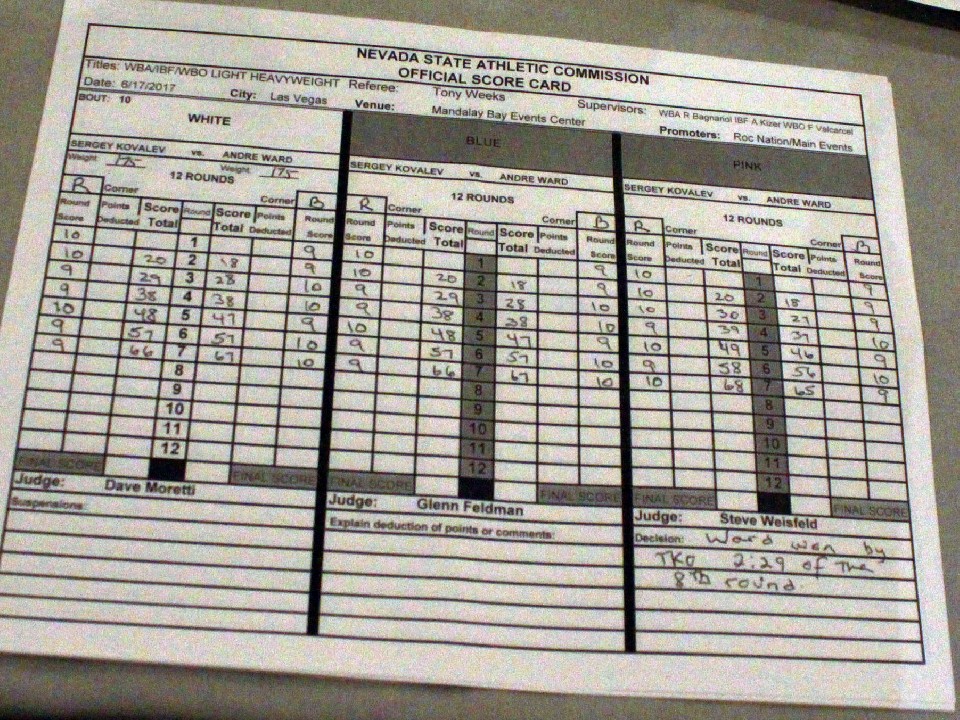 NEVADA STATE ATHLETIC COMMISSION
OFFICIAL SCORE CARD
Titles: WBA/IBF/WBO LIGHT HEAVYWEIGHT Referee: Tony Weeks Supervisors: WBA R Bagnariol IBF A Kizer WBO F Valcarcel
Date: 6/17/2017 City: Las Vegas Venue: Mandalay Bay Events Center Promoters: Roc Nation/Main Events
BOUT: 10
WHITE BLUE PINK
SERGEY KOVALEV vs. ANDRE WARD SERGEY KOVALEV vs. ANDRE WARD SERGEY KOVALEV vs. ANDRE WARD
Weight 175 Weight 175
12 ROUNDS 12 ROUNDS 12 ROUNDS
R Corner Corner B R Corner Corner B R Corner Corner B
Round Score Points Deducted Score Total Round Score Total Points Deducted Round Score Round Score Points Deducted Score Total Round Score Total Points Deducted Round Score Round Score Points Deducted Score Total Round Score Total Points Deducted Round Score
10 1 9 10 1 9 10 1 9
10 20 2 18 9 10 20 2 18 9 10 20 2 18 9
9 29 3 28 10 9 29 3 28 10 10 30 3 27 9
9 38 4 38 10 9 38 4 38 10 9 39 4 37 10
10 48 5 47 9 10 48 5 47 9 10 49 5 46 9
9 57 6 57 10 9 57 6 57 10 9 58 6 56 10
9 66 7 67 10 9 66 7 67 10 10 68 7 65 9
8 8 8
9 9 9
10 10 10
11 11 11
12 12 12
FINAL SCORE FINAL SCORE FINAL SCORE FINAL SCORE FINAL SCORE FINAL SCORE
Judge: Dave Moretti Judge: Glenn Feldman Judge: Steve Weisfeld
Suspensions: Explain deduction of points or comments: Decision: Ward won by
TKO 2:29 of The
8th round.